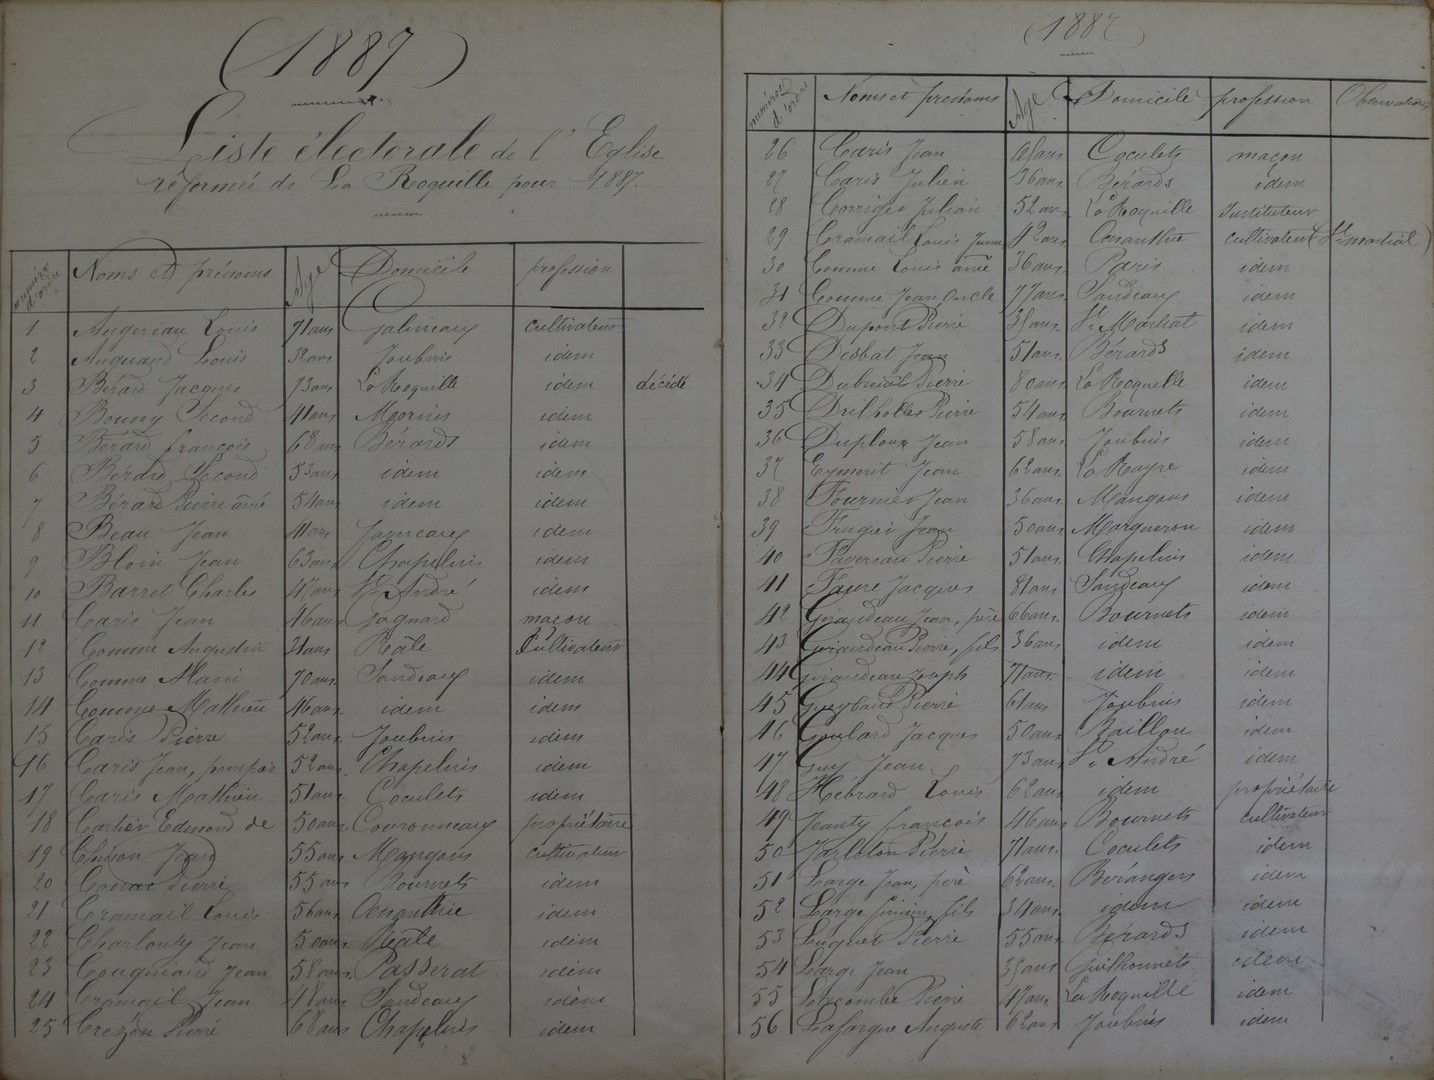 (1887)
Liste électorale de l'Eglise
réformée de La Roquille pour 1887.
numéros d'ordre Noms et prénoms Age Domicile profession
1 Augereau Louis 71 ans Galineaux cultivateur
2 Louis 32 ans Joubnis idem
3 Bérard Jacques 73 ans La Roquille idem décédé
4 Bouny Second 41 ans idem
5 Bérard françois 68 ans Bérards idem
6 Bérard Second 53 ans idem idem
7 Bérard Pierre aîné 54 ans idem idem
8 Beau Jean 41 ans idem
9 Bloin Jean 63 ans Chapelnis idem
10 Barret Charles 47 ans St André idem
11 Caris Jean 46 ans Gagnard maçon
12 Comme Augustin 31 ans Râle Cultivateur
13 Comme 70 ans Sandeaux idem
14 Comme Mathieu 46 ans idem idem
15 Caris Pierre 52 ans Joubnis idem
16 Caris Jean, 52 ans Chapelnis idem
17 Caris Mathieu 51 ans Coculets idem
18 Cartier Edmond de 50 ans Couronneaux propriétaire
19 Jean 55 ans Mangons cultivateur
20 Pierre 55 ans Bournets idem
21 Cramail Louis 56 ans idem
22 Jean 50 ans Râle idem
23 Jean 58 ans Passerat idem
24 Cramail Jean 48 ans Sandeaux idem
25 Crezon Pierre 68 ans Chapelnis idem
(1887)
numéros d'ordre Noms et prénoms Age Domicile profession Observations
26 Caris Jean Coculets maçon
27 Caris Julien 36 ans Bérards idem
28 Corriger Julian 52 ans La Roquille Instituteur
29 Cramail Louis 42 ans cultivateur (St martial)
30 Comme Louis aîné 36 ans Paris idem
31 Comme Jean Oncle 77 ans Sandeaux idem
32 Dupont Pierre St Martial idem
33 Desbat Jean 51 ans Bérards idem
34 Dubreuil Pierre 80 ans La Roquille idem
35 Drilholles Pierre 54 ans Bournets idem
36 Duploux Jean 58 ans Joubnis idem
37 Eymerit Jean 62 ans La Rayre idem
38 Fournier Jean 36 ans Mangons idem
39 Frugier Jean 50 ans Margueron idem
40 Favereau Pierre 51 ans Chapelnis idem
41 Faure Jacques 81 ans Sandeaux idem
42 Giraudeau Jean, père 66 ans Bournets idem
43 Giraudeau Pierre, fils 36 ans idem idem
44 Giraudeau Joseph 71 ans idem idem
45 Pierre 61 ans Joubnis idem
46 Goulard Jacques 50 ans Baillou idem
47 Guy Jean 73 ans St André idem
48 Hebrard Louis 62 ans idem propriétaire
49 Jeanty françois 46 ans Bournets cultivateur
50 Jarleton Pierre 71 ans Coculets idem
51 Large Jean, père 62 ans Bérangers idem
52 Large fils 34 ans idem idem
53 Luguet Pierre 55 ans Bérards idem
54 Large Jean Guilhonnets idem
55 Lacombe Pierre 47 ans La Roquille idem
56 Lafargue Auguste 62 ans Joubnis idem